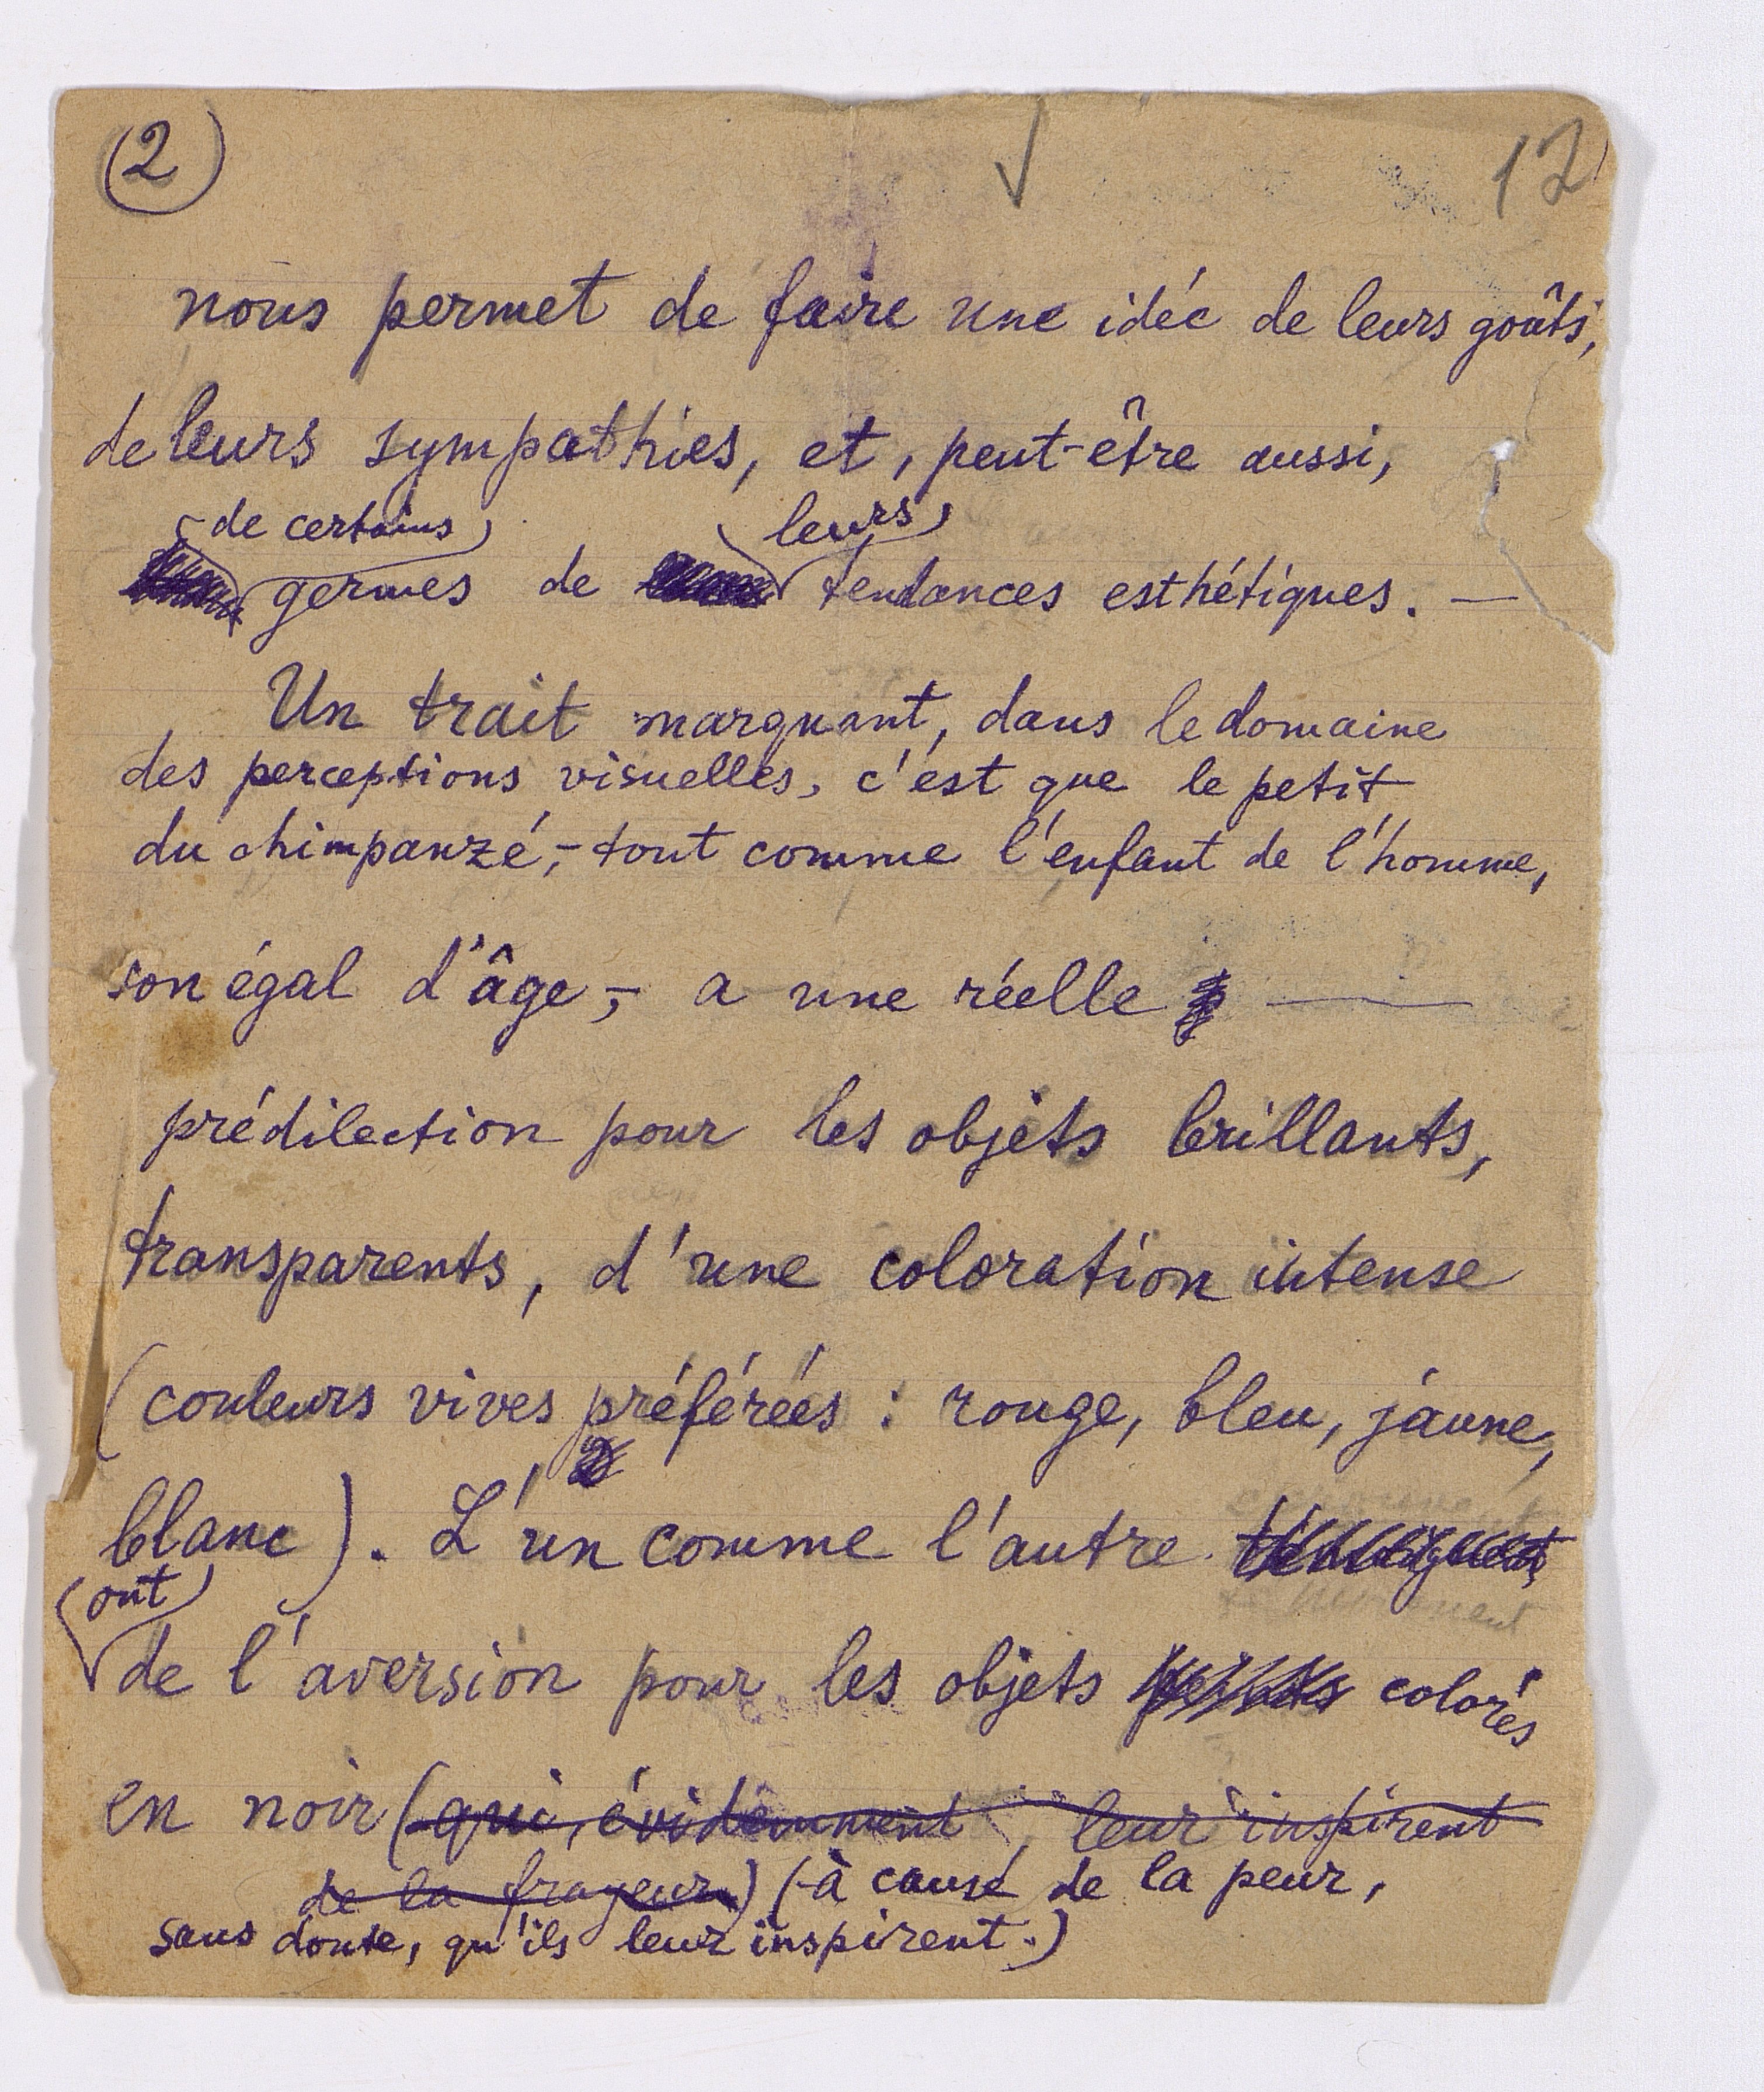 (2)
12
nous permet de faire une idée de leurs goûts,
de leurs sympathies, et, peut-être aussi,
de certains leurs
germes de tendances esthétiques. —
Un trait marquant, dans le domaine
des perceptions visuelles, c'est que le petit
du chimpanzé, - tout comme l'enfant de l'homme,
son égal d'âge, - a une réelle —
prédilection pour les objets brillants,
transparents, d'une coloration intense
(couleurs vives préférées : rouge, bleu, jaune,
blanc). L'un comme l'autre
ont
de l'aversion pour les objets colorés
en noir (qui, évidemment, leur inspirent
de la frayeur) (à cause de la peur,
sans doute, qu'ils leur inspirent.)